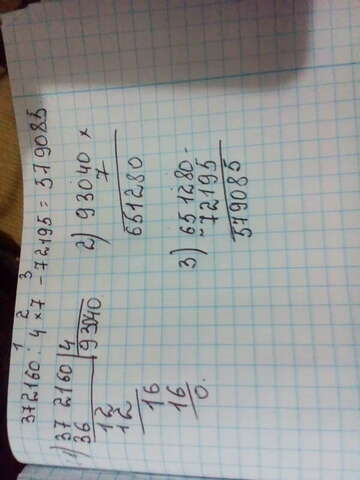 1 2 3
372160 : 4 × 7 - 72195 = 579085
1) 372160 | 4
36 | 93040
12
12
16
16
0.
2) 93040 ×
7
651280
3) 651280 -
- 72195
579085